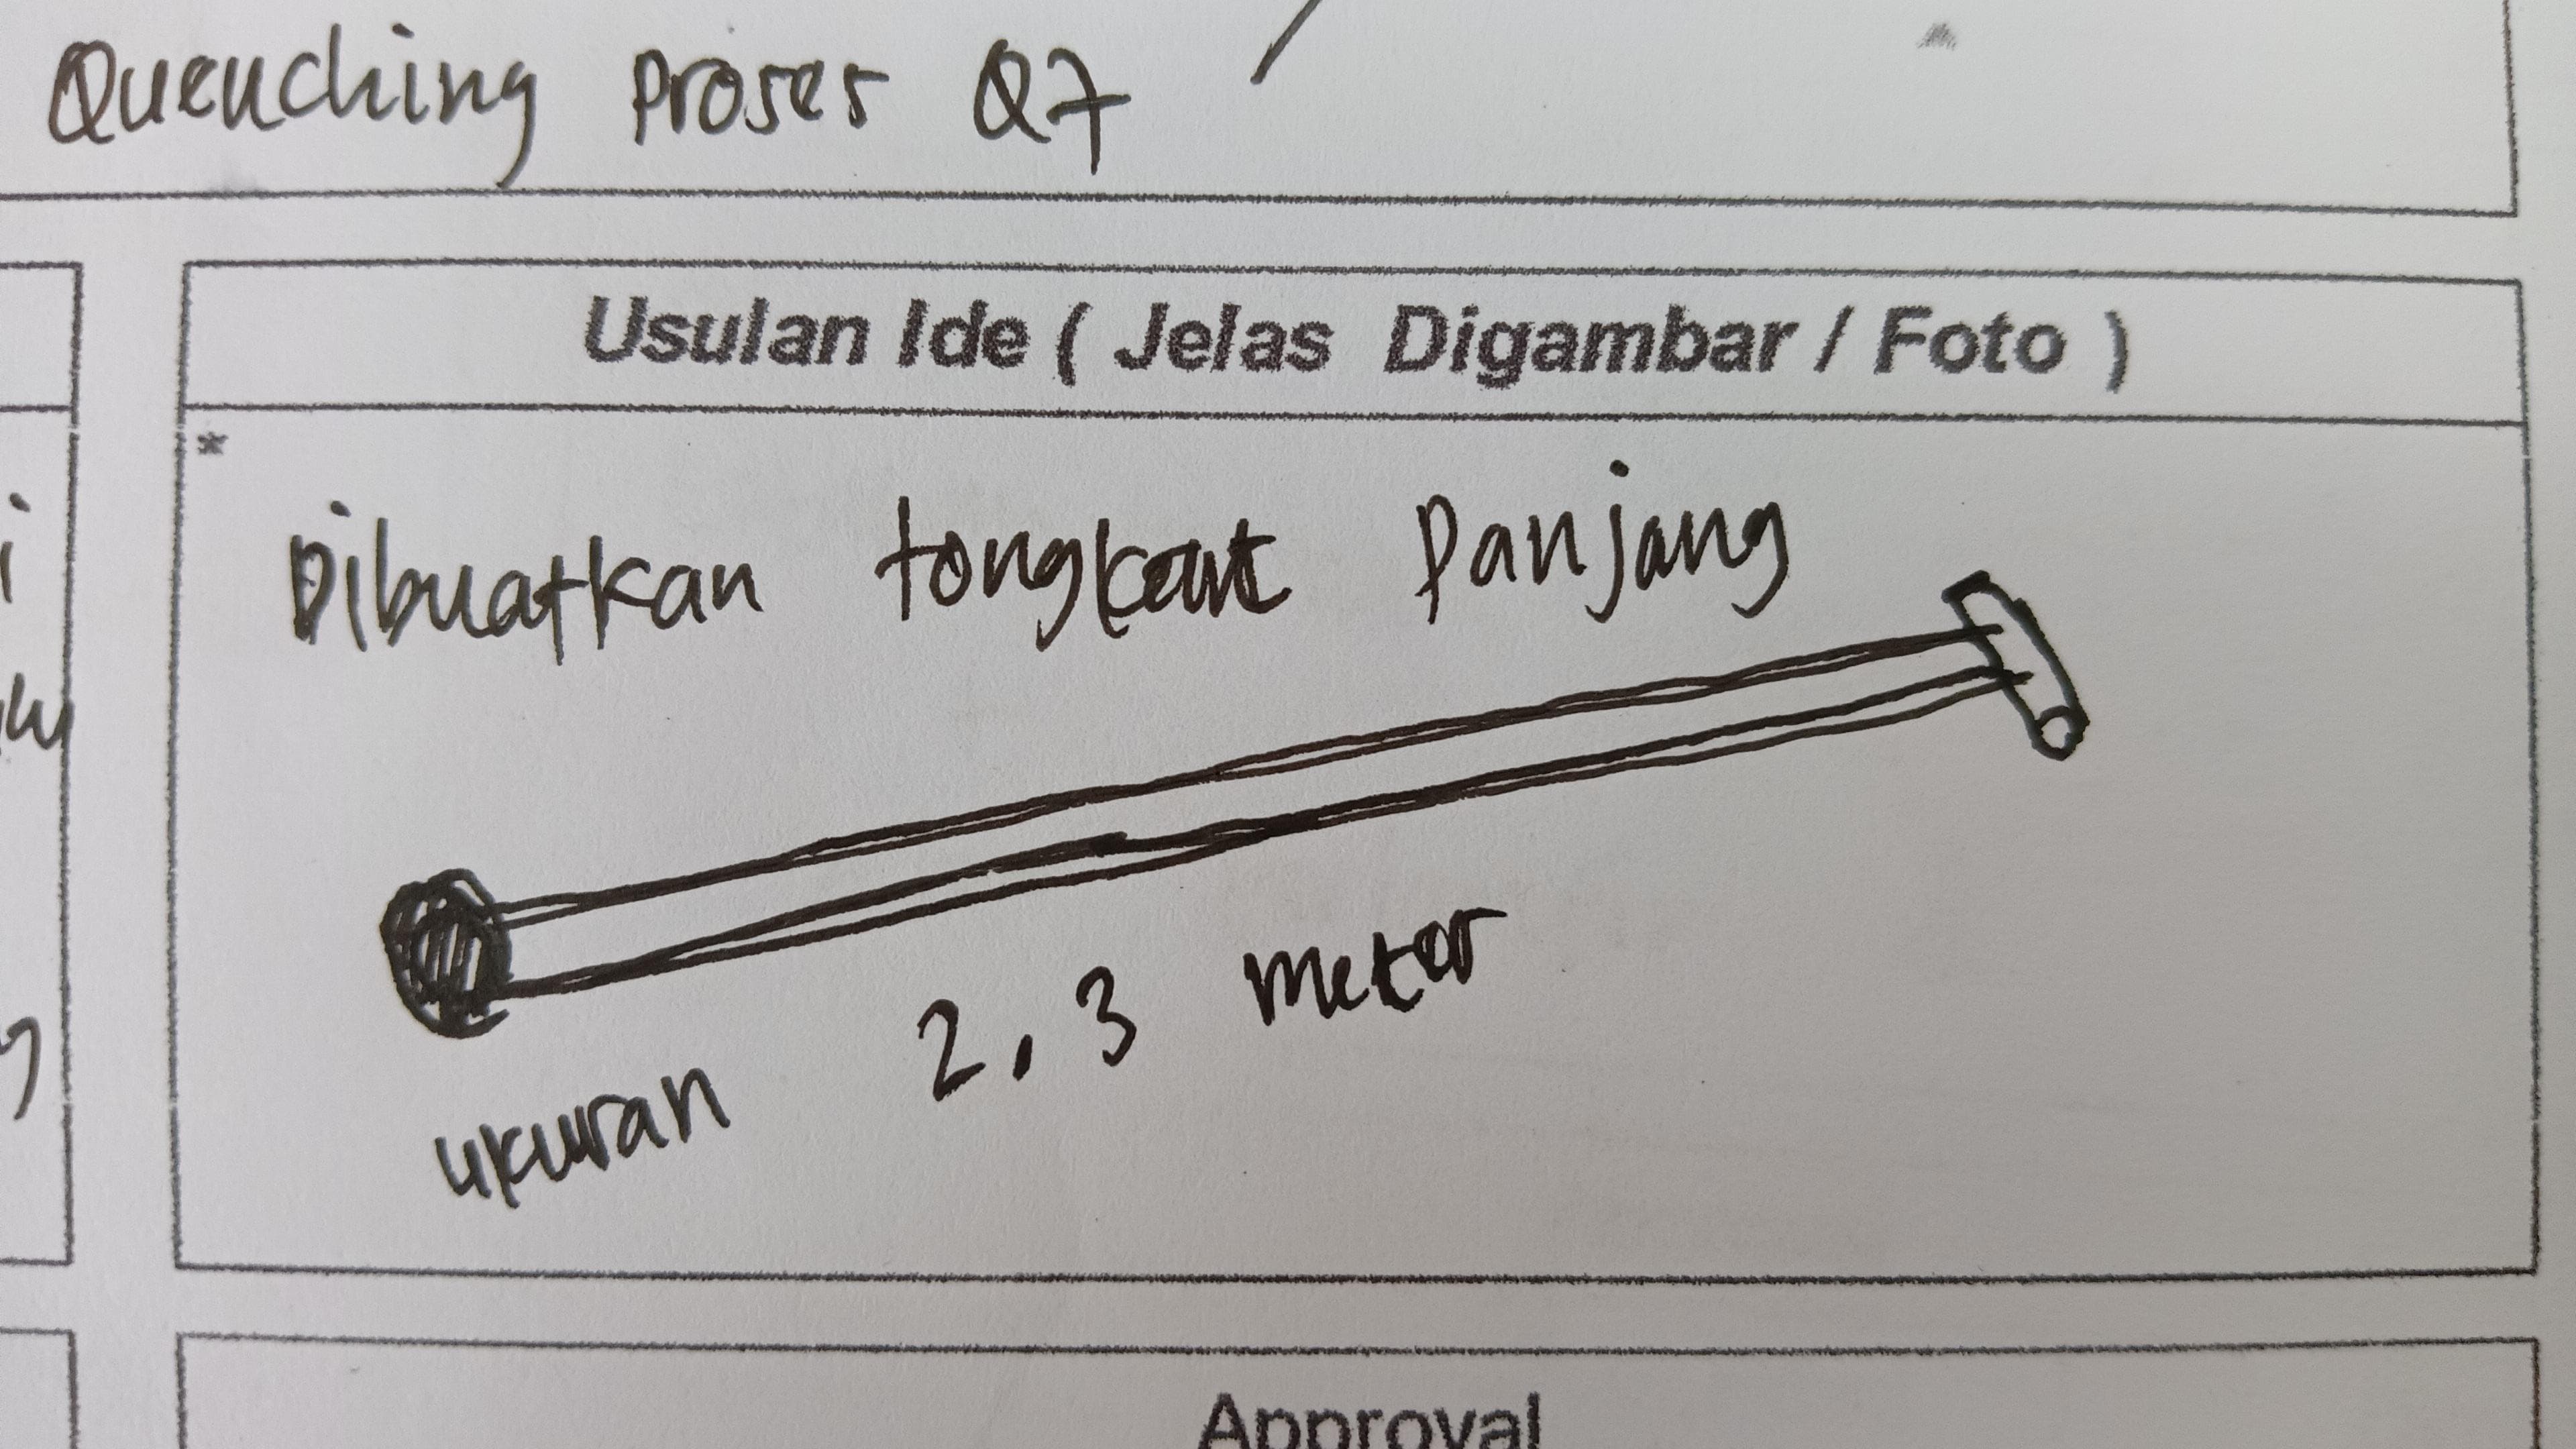 Quenching Proses Q7
Usulan Ide ( Jelas Digambar / Foto )
*
Dibuatkan tongkat Panjang
ukuran 2,3 meter
Approval